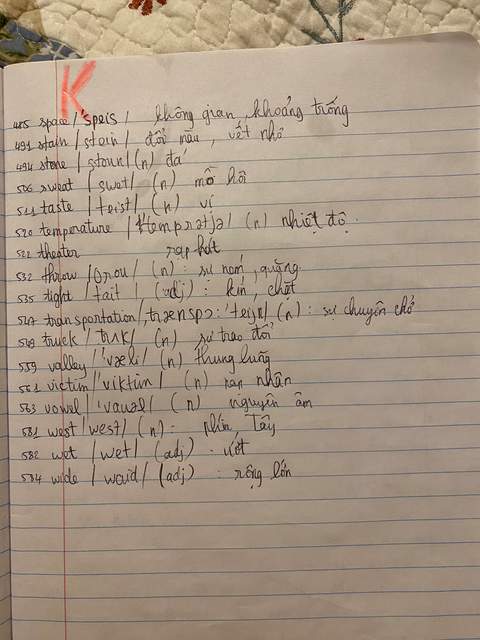 K
485 space /'speis/ không gian, khoảng trống
491 stain /stein/ đổi màu, vết nhơ
494 stone /stoun/ (n) đá
506 sweat /swot/ (n) mồ hôi
511 taste /teist/ (n) vị
520 temperature /'tempratʃə/ (n) nhiệt độ.
522 theater rạp hát
532 throw /θrou/ (n): sự ném, quăng
535 tight /tait/ (adj): kín, chặt
547 transportation/,trænspɔ:'teiʃn/ (n): sự chuyên chở
549 truck /trʌk/ (n) sự trao đổi
559 valley /'væli/ (n) thung lũng
561 victim /'viktim/ (n) nạn nhân
563 vowel /'vauəl/ (n) nguyên âm
581 west /west/ (n): phía Tây
582 wet /wet/ (adj): ướt
584 wide /waid/ (adj): rộng lớn